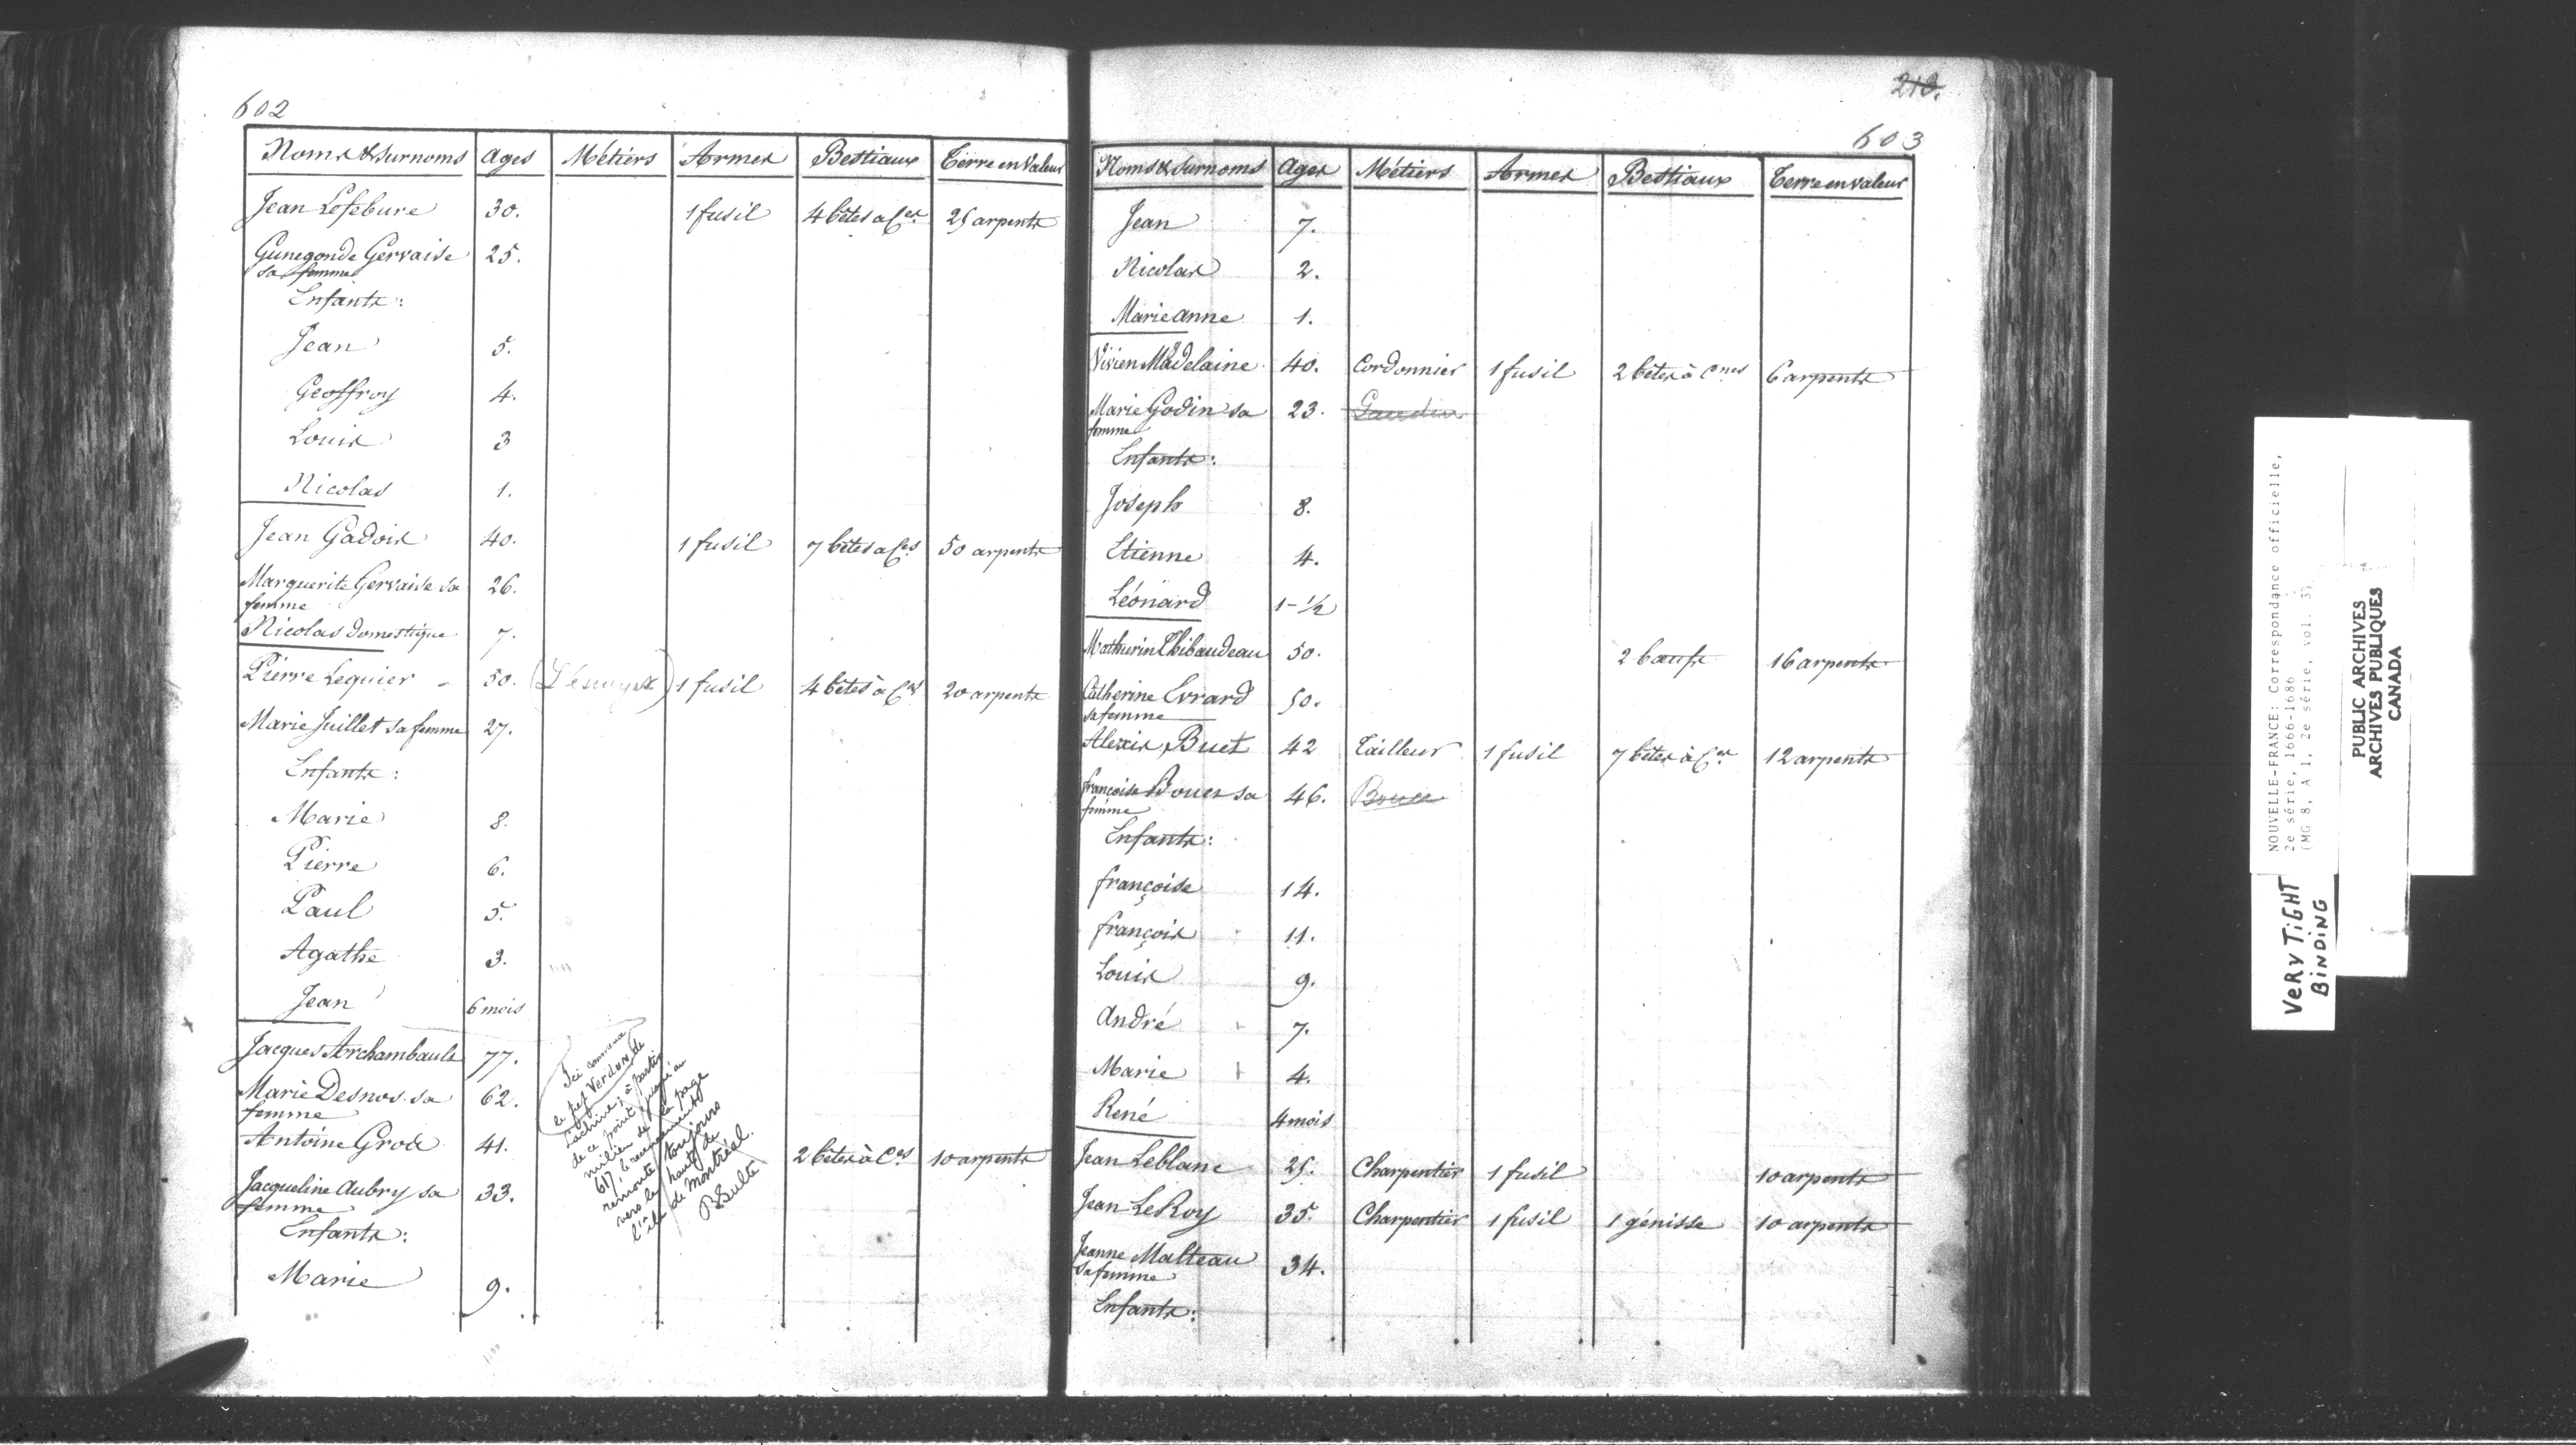 602
Noms & Surnoms Ages Métiers Armes Bestiaux Terre en Valeur
Jean Lefebure 30. 1 fusil 4 bêtes a Ces. 25 arpents
Gunegonde Gervaise 25.
sa femme
Enfants:
Jean 5.
Geoffroy 4.
Louis 3
Nicolas 1.
Jean Gadois 40. 1 fusil 7 bêtes a Ces 50 arpents
Marguerite Gervaise sa 26.
femme
Nicolas domestique 7.
Pierre Lequier - 50. (L'écuyer) 1 fusil 4 bêtes à Ces 20 arpents
Marie Juillet sa femme 27.
Enfants:
Marie 8.
Pierre 6.
Paul 5.
Agathe 3.
Jean 6 mois
Jacques Archambault 77.
Marie Desnos sa 62.
femme
Antoine Grode 41. 2 bêtes à Ces 10 arpents
Jacqueline Aubry sa 33.
femme
Enfants:
Marie 9.
Ici commence
le fief Verdun de
Lachine; à partir
de ce point jusqu'au
milieu de la page
617, le recensement
remonte toujours
vers le haut de
l'île de Montréal.
B Sulte
213.
603
Noms & Surnoms Ages Métiers Armes Bestiaux Terre en valeur
Jean 7.
Nicolas 2.
Marie anne 1.
Vivien Madelaine 40. Cordonnier 1 fusil 2 bêtes à Cnes 6 arpents
Marie Godin sa 23. Gaudin
femme
Enfants:
Joseph 8.
Etienne 4.
Léonard 1-1/2
Mathurin Thibaudeau 50. 2 boeufs 16 arpents
Catherine Evrard 50.
sa femme
Alexis Buet 42 Tailleur 1 fusil 7 bêtes à Ces 12 arpents
françoise Boues sa 46.
femme
Enfants:
françoise 14.
françois 11.
Louis 9.
André 7.
Marie 4.
René 4 mois
Jean Leblanc 25. Charpentier 1 fusil 10 arpents
Jean Le Roy 35. Charpentier 1 fusil 1 génisse 10 arpents
Jeanne Malteau 34.
sa femme
Enfants:
NOUVELLE-FRANCE: Correspondance officielle,
2e série, 1666-1686
(MG 8, A 1, 2e série, vol. 3)
VERY TIGHT
BINDING
PUBLIC ARCHIVES
ARCHIVES PUBLIQUES
CANADA